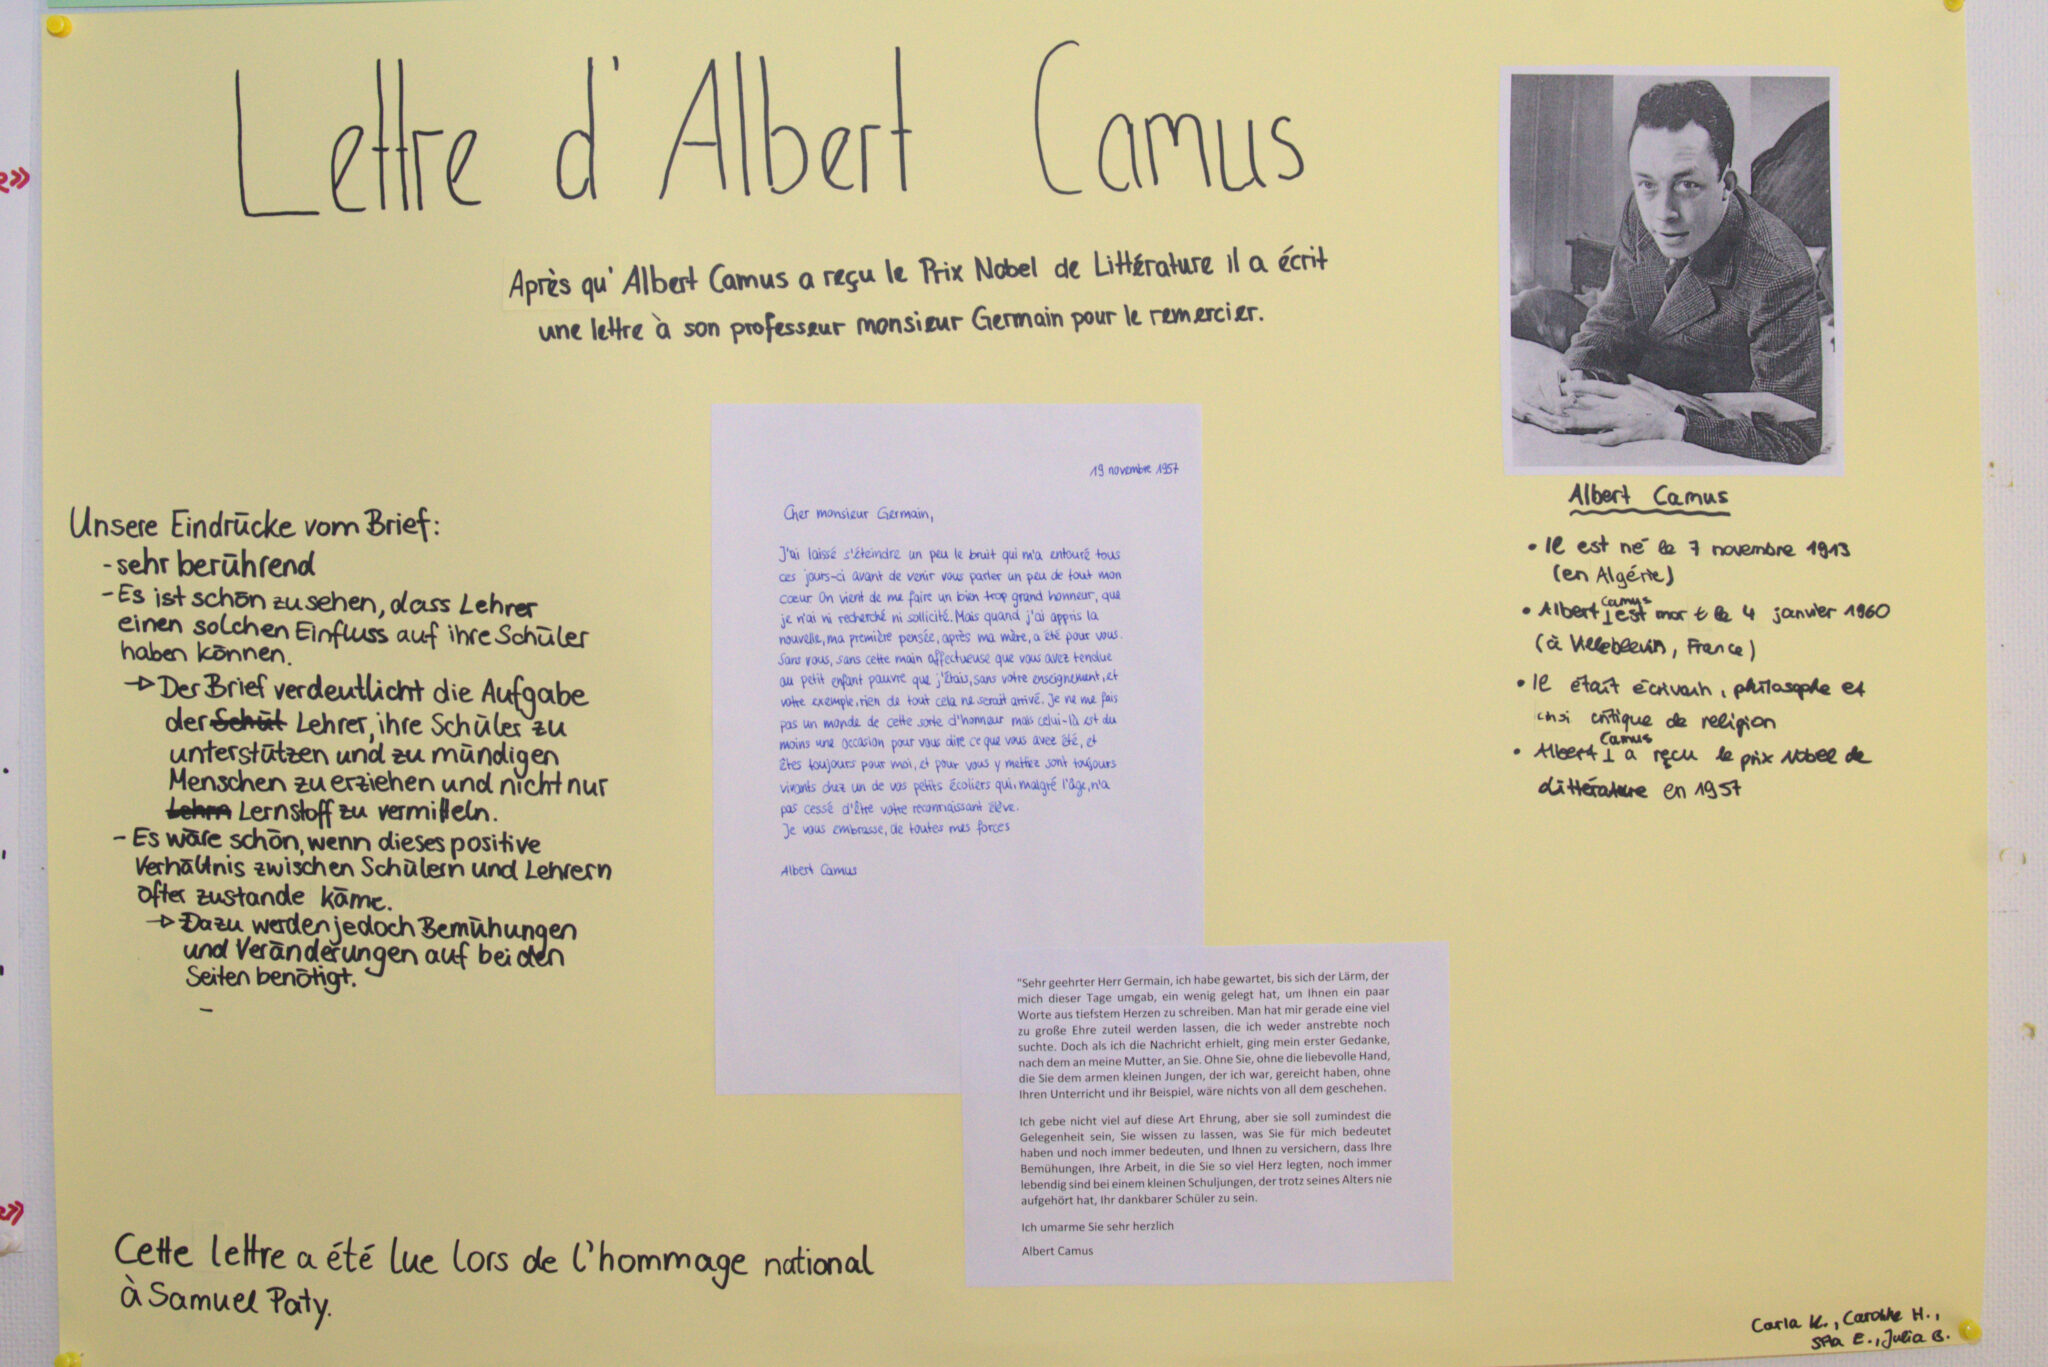 Lettre d'Albert Camus
Après qu'Albert Camus a reçu le Prix Nobel de Littérature il a écrit
une lettre à son professeur monsieur Germain pour le remercier.
Unsere Eindrücke vom Brief:
- sehr berührend
- Es ist schön zu sehen, dass Lehrer
einen solchen Einfluss auf ihre Schüler
haben können.
→ Der Brief verdeutlicht die Aufgabe
der Schül Lehrer, ihre Schüler zu
unterstützen und zu mündigen
Menschen zu erziehen und nicht nur
Lehrn Lernstoff zu vermitteln.
- Es wäre schön, wenn dieses positive
Verhältnis zwischen Schülern und Lehrern
öfter zustande käme.
→ Dazu werden jedoch Bemühungen
und Veränderungen auf beiden
Seiten benötigt.
-
19 novembre 1957
Cher monsieur Germain,
J'ai laissé s'éteindre un peu le bruit qui m'a entouré tous
ces jours-ci avant de venir vous parler un peu de tout mon
cœur On vient de me faire un bien trop grand honneur, que
je n'ai ni recherché ni sollicité. Mais quand j'ai appris la
nouvelle, ma première pensée, après ma mère, a été pour vous.
Sans vous, sans cette main affectueuse que vous avez tendue
au petit enfant pauvre que j'étais, sans votre enseignement, et
votre exemple, rien de tout cela ne serait arrivé. Je ne me fais
pas un monde de cette sorte d'honneur mais celui-là est du
moins une occasion pour vous dire ce que vous avez été, et
êtes toujours pour moi, et pour vous y mettez sont toujours
vivants chez un de vos petits écoliers qui, malgré l'âge, n'a
pas cessé d'être votre reconnaissant élève.
Je vous embrasse, de toutes mes forces
Albert Camus
"Sehr geehrter Herr Germain, ich habe gewartet, bis sich der Lärm, der
mich dieser Tage umgab, ein wenig gelegt hat, um Ihnen ein paar
Worte aus tiefstem Herzen zu schreiben. Man hat mir gerade eine viel
zu große Ehre zuteil werden lassen, die ich weder anstrebte noch
suchte. Doch als ich die Nachricht erhielt, ging mein erster Gedanke,
nach dem an meine Mutter, an Sie. Ohne Sie, ohne die liebevolle Hand,
die Sie dem armen kleinen Jungen, der ich war, gereicht haben, ohne
Ihren Unterricht und ihr Beispiel, wäre nichts von all dem geschehen.
Ich gebe nicht viel auf diese Art Ehrung, aber sie soll zumindest die
Gelegenheit sein, Sie wissen zu lassen, was Sie für mich bedeutet
haben und noch immer bedeuten, und Ihnen zu versichern, dass Ihre
Bemühungen, Ihre Arbeit, in die Sie so viel Herz legten, noch immer
lebendig sind bei einem kleinen Schuljungen, der trotz seines Alters nie
aufgehört hat, Ihr dankbarer Schüler zu sein.
Ich umarme Sie sehr herzlich
Albert Camus
Albert Camus
• Il est né le 7 novembre 1913
(en Algérie)
• Albert Camus est mort le 4 janvier 1960
(à Villeblevin, France)
• Il était écrivain, philosophe et
critique de religion
• Albert Camus a reçu le prix Nobel de
littérature en 1957
Cette lettre a été lue lors de l'hommage national
à Samuel Paty.
Carla K., Caroline H.,
E., Julia B.